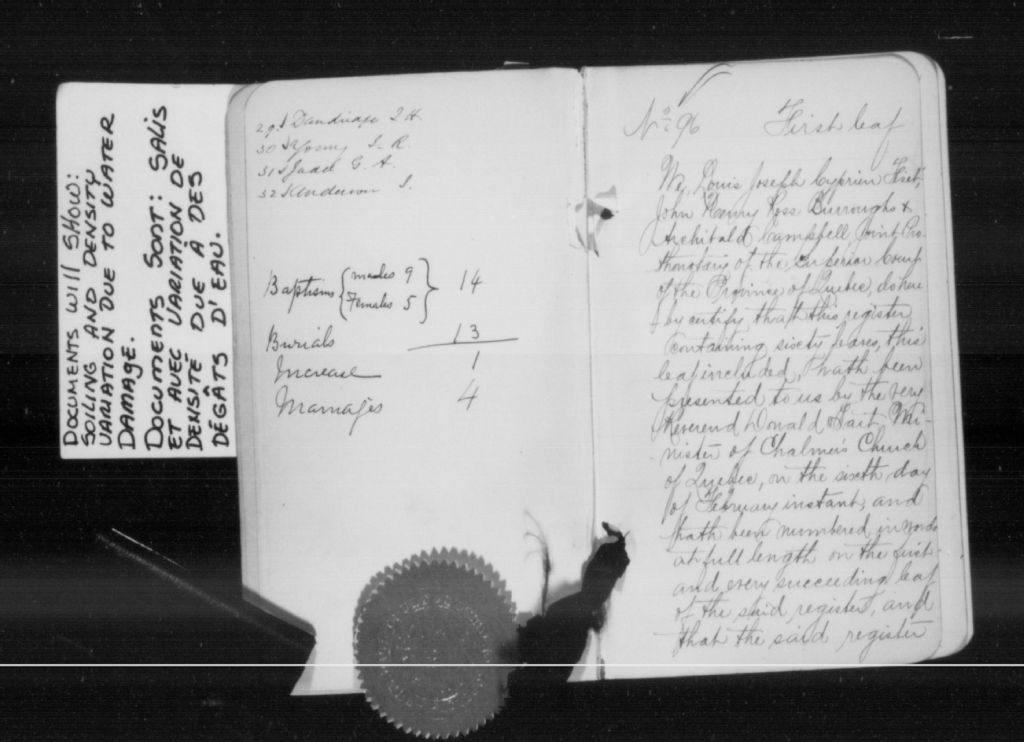 DOCUMENTS WILL SHOW:
SOILING AND DENSITY
VARIATION DUE TO WATER
DAMAGE.
DOCUMENTS SONT: SALIS
ET AVEC VARIATION DE
DENSITÉ DUE À DES
DÉGÂTS D'EAU.
29 Dandirage J. H.
30 Young J. R.
31 Judd G. A.
32 Anderson J.
Baptisms { males 9 } 14
Females 5
Burials 13
Increase 1
Marriages 4
No. 96 First leaf
We, Louis Joseph Cyprien Fiset,
John Henry Ross Burroughs &
Archibald Campbell, Joint Pro-
thonotary of the Superior Court
of the Province of Quebec, do here
by certify that this register
containing sixty leaves, this
leaf included, hath been
presented to us by the very
Reverend Donald Tait, Mi-
nister of Chalmers Church
of Quebec, on the sixth day
of February instant, and
hath been numbered in words
at full length on the first
and every succeeding leaf
of the said register, and
that the said register